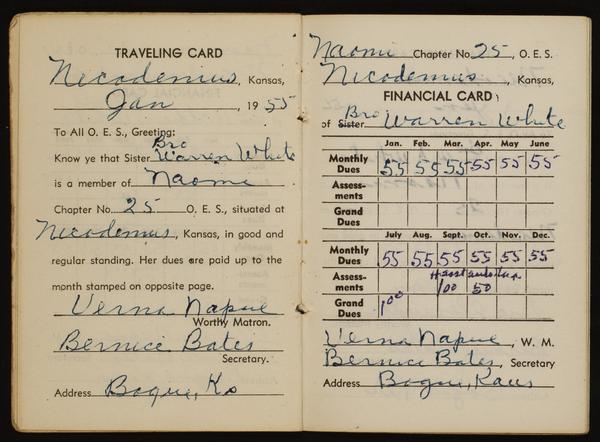 TRAVELING CARD
Nicodemus, Kansas,
Jan, 1955
To All O. E. S., Greeting:
Bro
Know ye that Sister Warren White
is a member of Naomi
Chapter No. 25 O. E. S., situated at
Nicodemus, Kansas, in good and
regular standing. Her dues are paid up to the
month stamped on opposite page.
Verna Napue
Worthy Matron.
Bernice Bates
Secretary.
Address Bogue, Ks
Naomi Chapter No. 25, O. E. S.
Nicodemus, Kansas,
FINANCIAL CARD
Bro
of Sister Warren White
Jan. Feb. Mar. Apr. May June
Monthly Dues 55 55 55 55 55 55
Assessments
Grand Dues
July Aug. Sept. Oct. Nov. Dec.
Monthly Dues 55 55 55 55 55 55
Assessments 1 00 50
Grand Dues 1 00
Verna Napue, W. M.
Bernice Bates, Secretary
Address Bogue, Kans